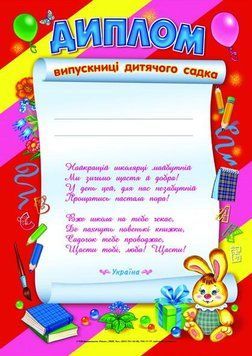 ДИПЛОМ
випускниці дитячого садка
Найкращій школярці майбутній
Ми зичимо щастя й добра!
У день цей, для нас незабутній
Прощатись настала пора!
Вже школа на тебе чекає,
Де пахнуть новенькі книжки,
Садочок тебе проводжає,
Щасти тобі, люба! Щасти!
Україна